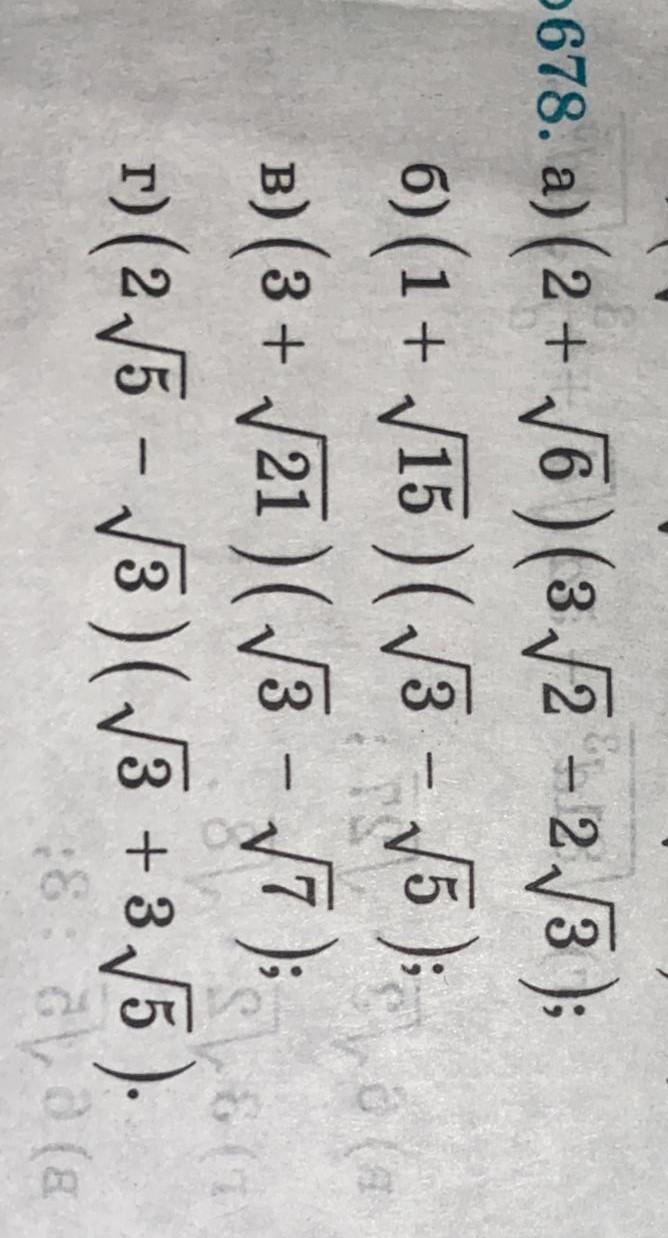 678. а) (2 + √6)(3√2 - 2√3);
б) (1 + √15)(√3 - √5);
в) (3 + √21)(√3 - √7);
г) (2√5 - √3)(√3 + 3√5).